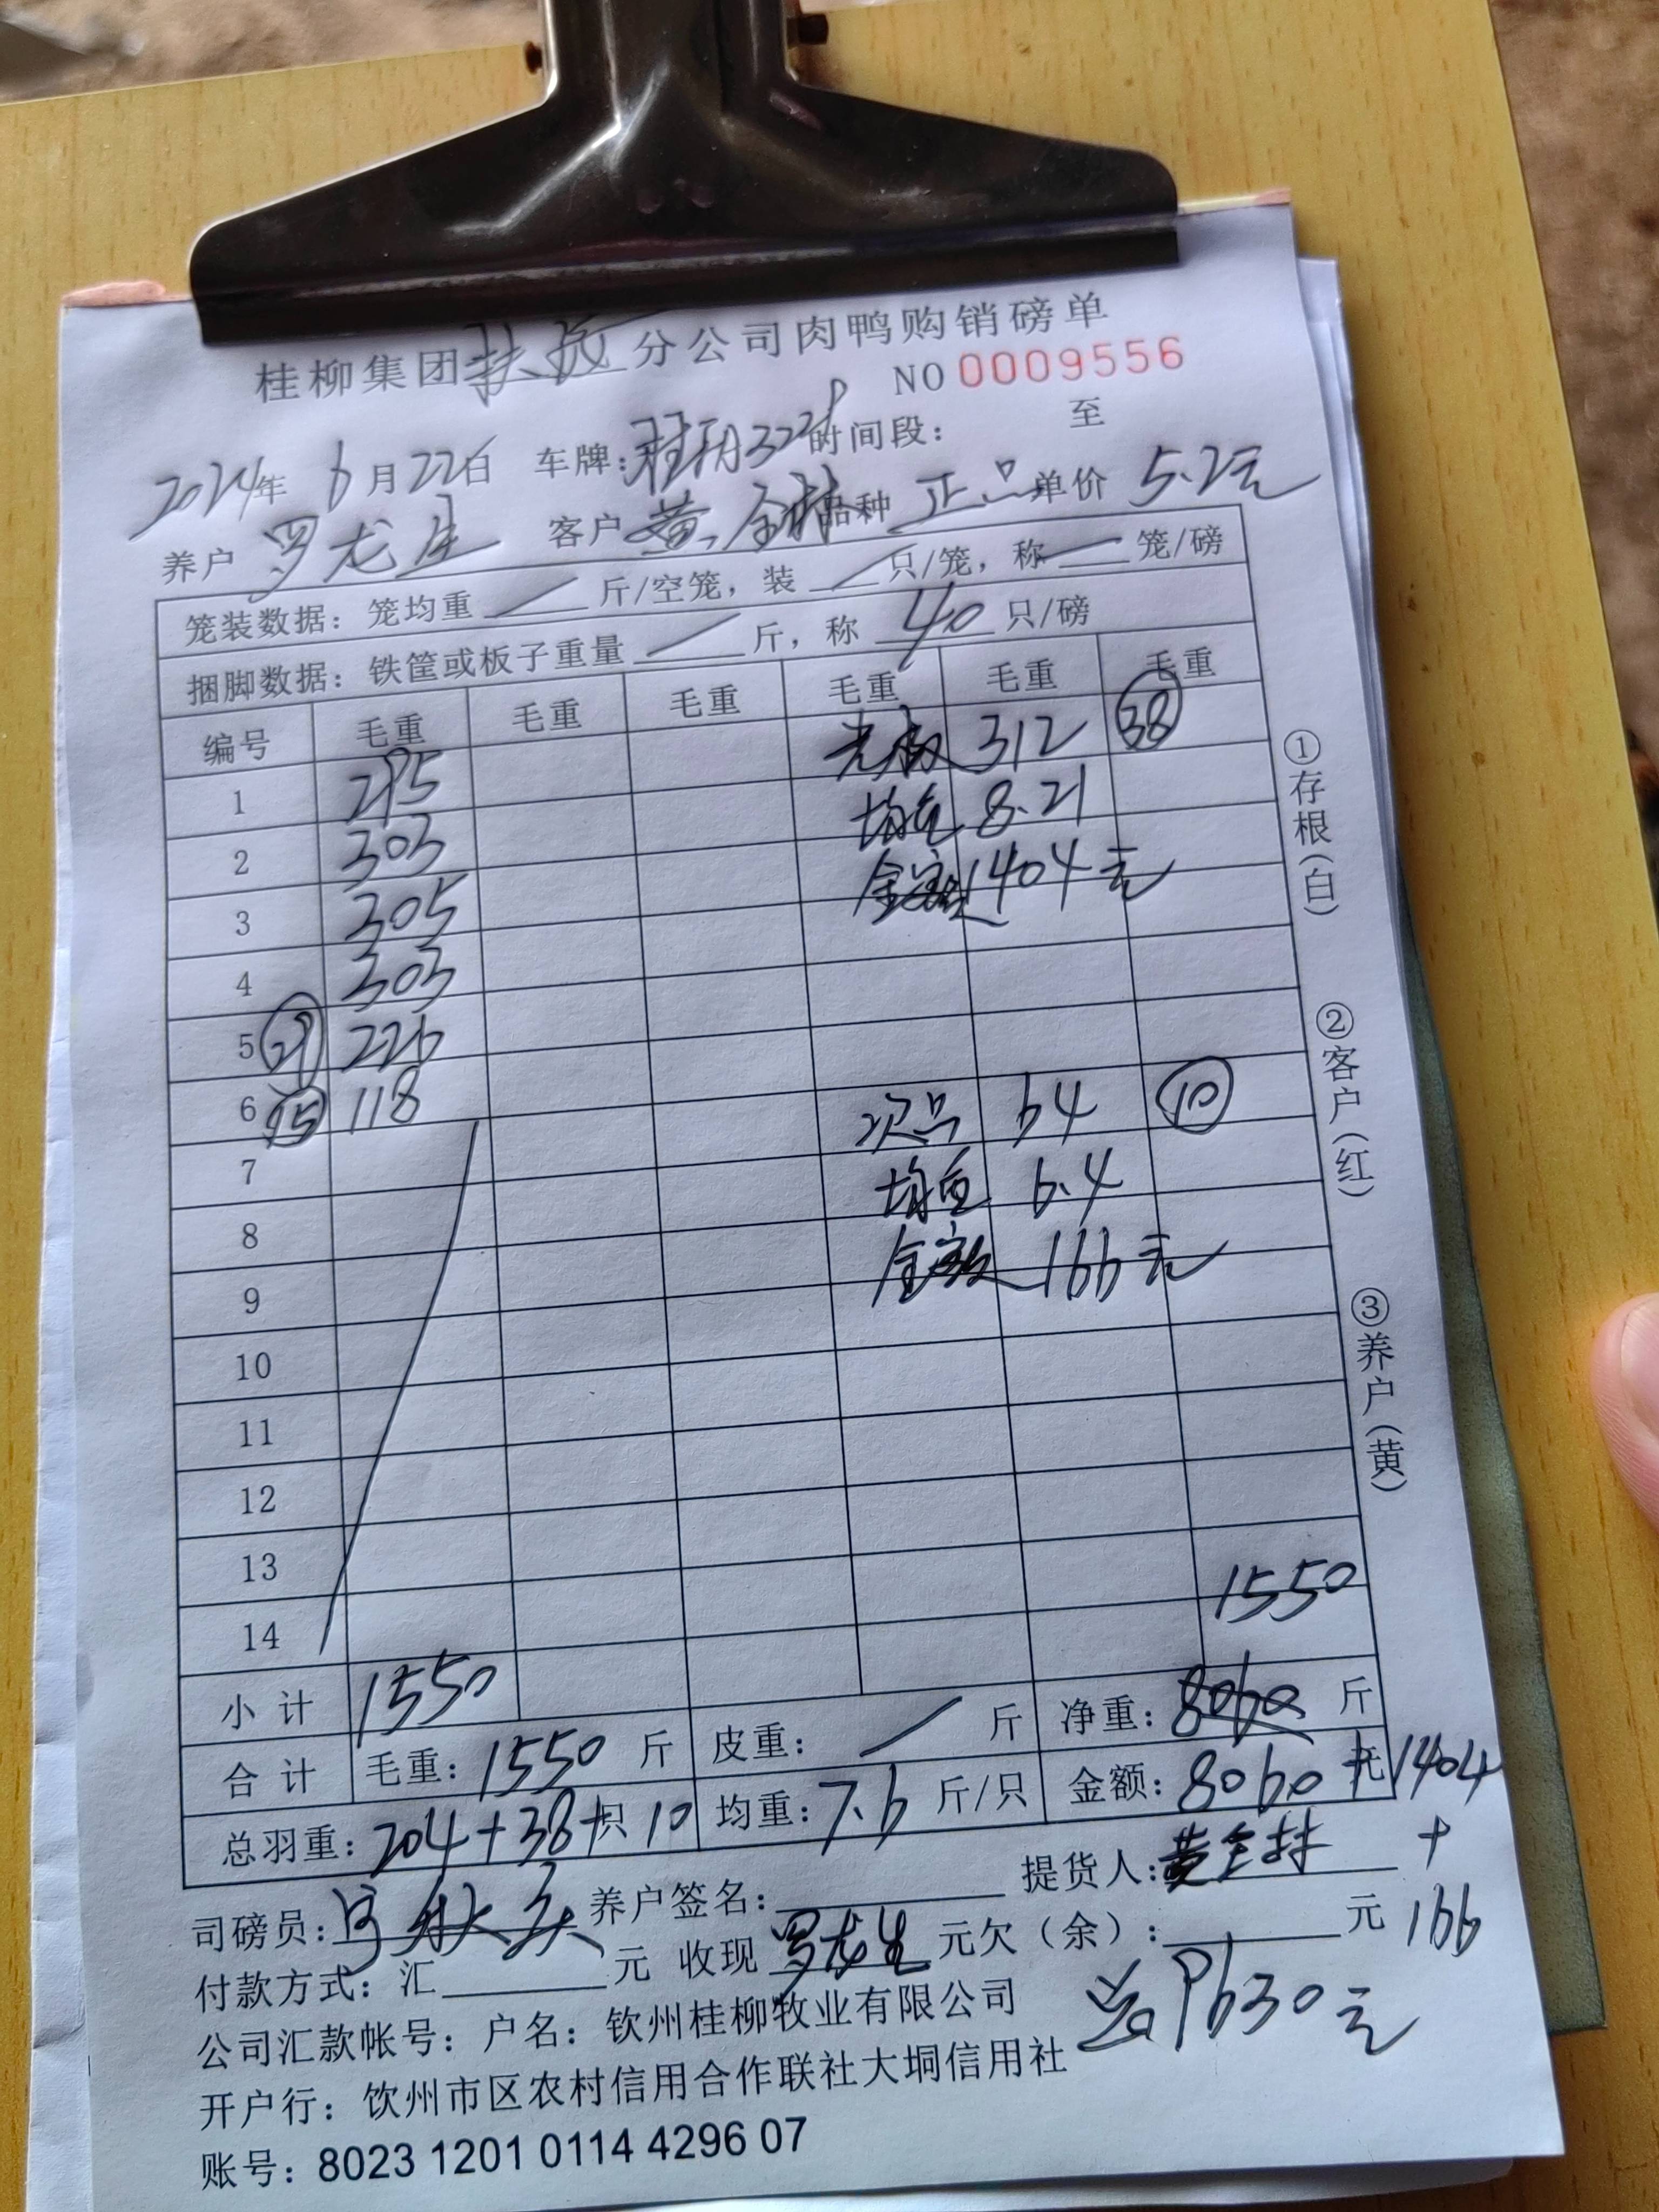 桂柳集团扶绥分公司肉鸭购销磅单
NO 0009556
2024年 6月22日 车牌: 3228 时间段: 至
养户 罗龙生 客户 黄金林 品种 正品 单价 5.2元
笼装数据: 笼均重 / 斤/空笼, 装 / 只/笼, 称 / 笼/磅
捆脚数据: 铁筐或板子重量 / 斤, 称 40 只/磅
编号 毛重 毛重 毛重 毛重 毛重 毛重
1 295 312 38
2 303 均重 8.21
3 305 金额 1404元
4 303
5 29 226
6 15 118 次品 64 10
7 均重 6.4
8 金额 166元
9
10
11
12
13
14 1550
小计 1550
合计 毛重: 1550 斤 皮重: / 斤 净重: 8060 斤
总羽重: 204+38+只 10 均重: 7.6 斤/只 金额: 8060 元 +1404
司磅员: 养户签名: 提货人: 黄金林 +
付款方式: 汇 元 收现 罗龙生 元欠(余): 元 166
公司汇款帐号: 户名: 钦州桂柳牧业有限公司 总9630元
开户行: 钦州市区农村信用合作联社大垌信用社
账号: 8023 1201 0114 4296 07
①存根(白)
②客户(红)
③养户(黄)